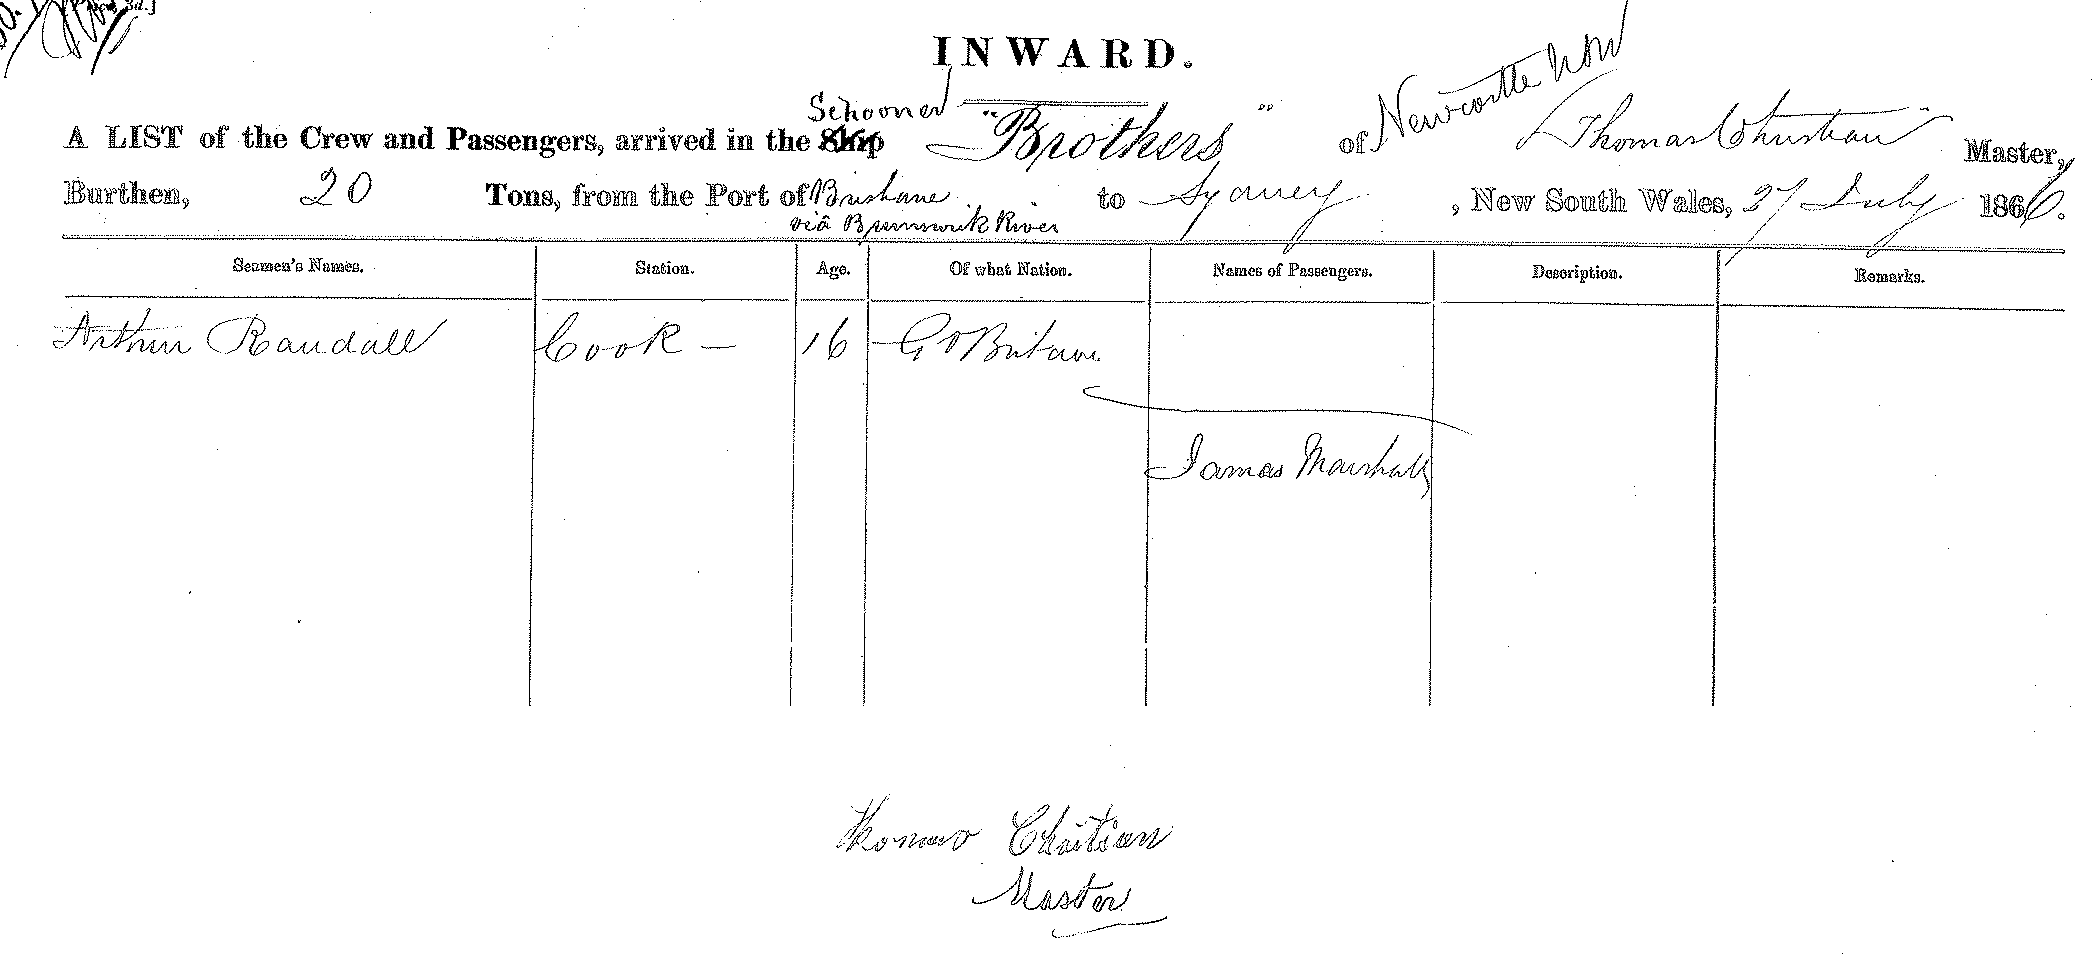 3d.]
INWARD.
Schooner
A LIST of the Crew and Passengers, arrived in the Ship "Brothers" of Newcastle NSW Thomas Christian Master,
Burthen, 20 Tons, from the Port of Brisbane to Sydney, New South Wales, 27 July 1866.
viâ Brunswick River
Seamen's Names. Station. Age. Of what Nation. Names of Passengers. Description. Remarks.
Arthur Randall Cook — 16 Gt Britain
James Marshall
Thomas Christian
Master